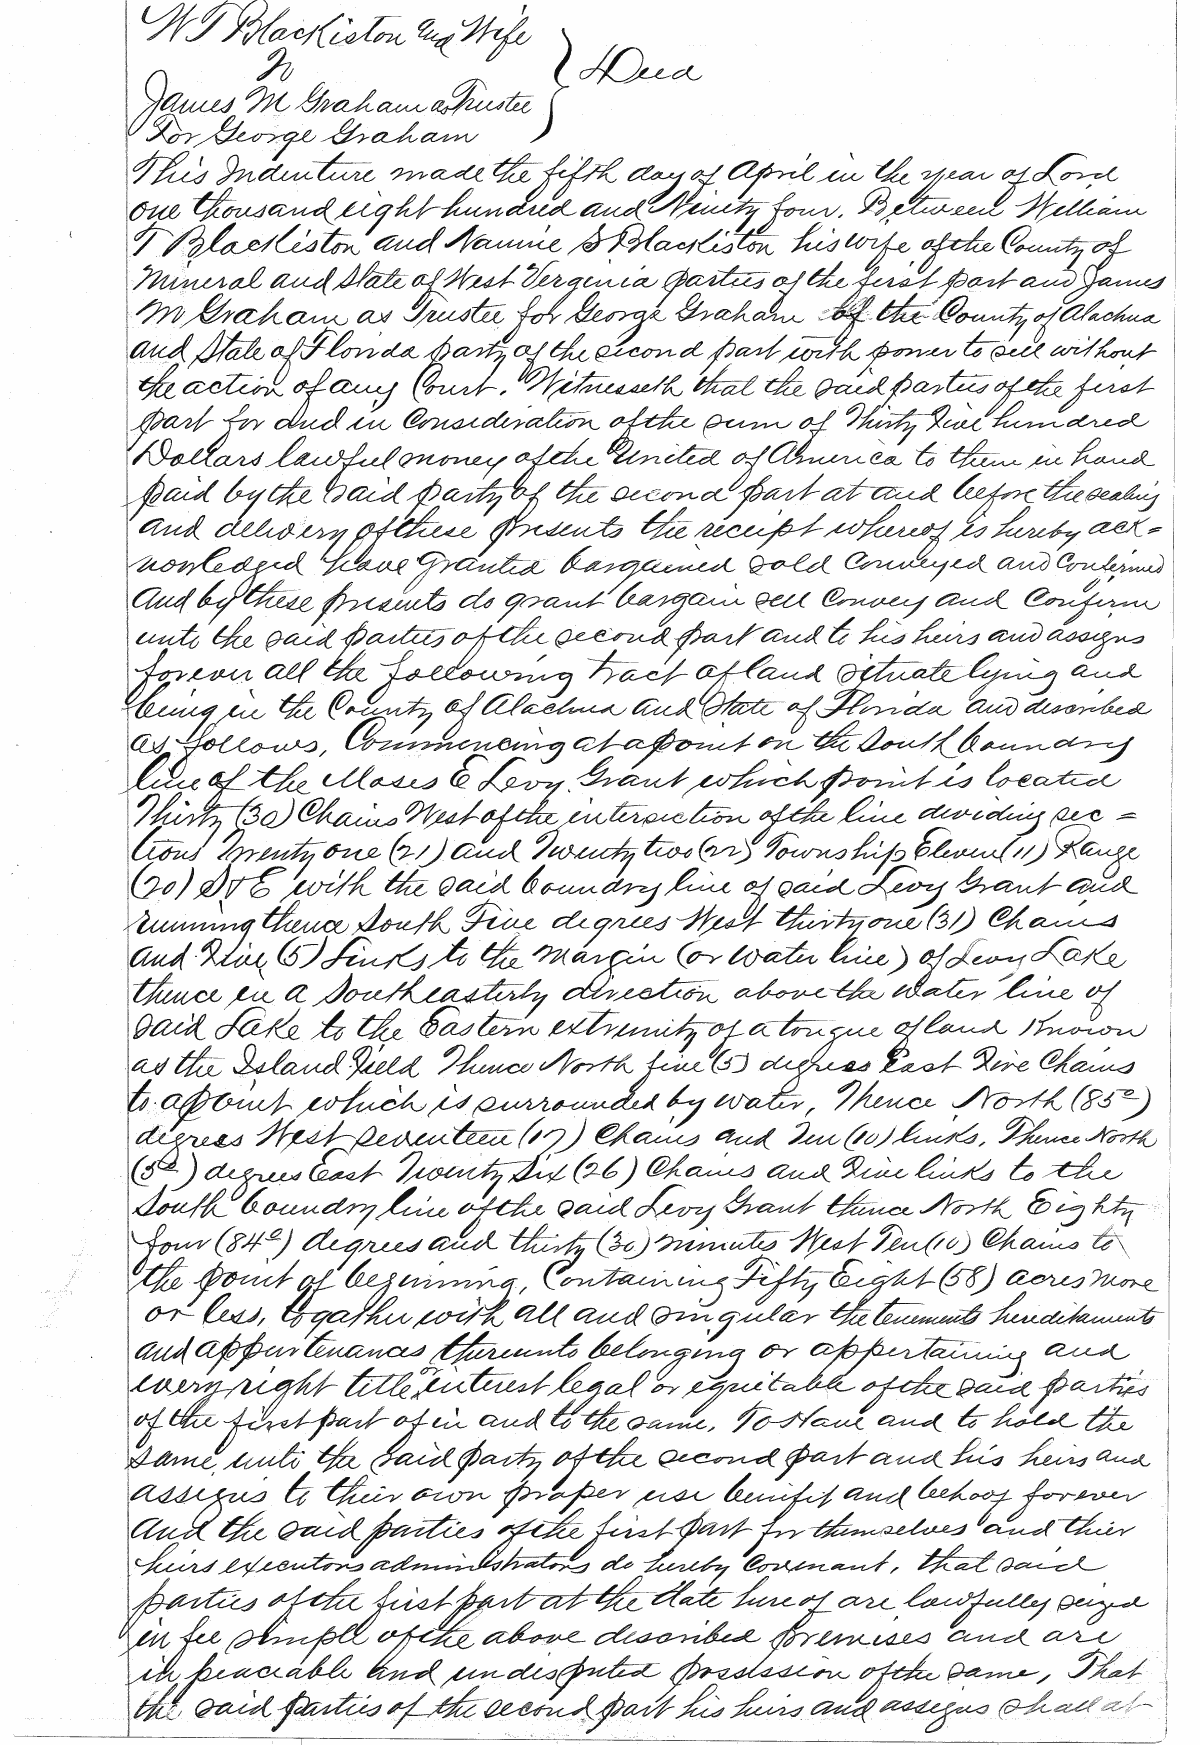 W T Blackiston and Wife
To
Deed
James M Graham as Trustee
For George Graham
This Indenture made the fifth day of April in the year of Lord
one thousand eight hundred and Ninety four. Between William
T Blackiston and Nannie S Blackiston his wife of the County of
Mineral and State of West Verginia parties of the first part and James
M Graham as Trustee for George Graham of the County of Alachua
and State of Florida party of the second part with power to sell without
the action of any Court. Witnesseth that the said parties of the first
part for and in Consideration of the sum of Thirty Five hundred
Dollars lawful money of the United of America to them in hand
paid by the said party of the second part at and before the sealing
and delivery of these presents the receipt whereof is hereby ack=
nowledged have Granted bargained sold Conveyed and Confirmed
And by these presents do grant bargain sell Convey and Confirm
unto the said parties of the second part and to his heirs and assigns
forever all the following tract of land situate lying and
being in the County of Alachua and State of Florida and described
as follows, Commencing at a point on the South boundry
line of the Moses E Levy Grant which point is located
Thirty (30) Chains West of the intersection of the line dividing sec=
tions Twenty one (21) and Twenty two (22) Township Eleven (11) Range
(20) S & E with the said boundry line of said Levy Grant and
running thence South Five degrees West thirty one (31) Chains
and Five (5) Links to the Margin (or water line) of Levy Lake
thence in a Southeasterly direction above the water line of
said Lake to the Eastern extremity of a tongue of land Known
as the Island Field Thence North five (5) degrees East Five Chains
to a point which is surrounded by water, Thence North (85°)
degrees West seventeen (17) Chains and Ten (10) links. Thence North
(5°) degrees East Twenty Six (26) Chains and Five links to the
South boundry line of the said Levy Grant thence North Eighty
four (84°) degrees and thirty (30) minutes West Ten (10) Chains to
the point of beginning, Containing Fifty Eight (58) acres more
or less, togather with all and singular the tenements hereditaments
and appurtenances thereunto belonging or appertaining and
every right title interest legal or equitable of the said parties
of the first part of in and to the same. To Have and to hold the
same unto the said party of the second part and his heirs and
assigns to their own proper use benifit and behoof forever
And the said parties of the first part for themselves and thier
heirs executors administrators do hereby Covenant, that said
parties of the first part at the date hereof are lawfully seized
in fee simple of the above described premises and are
in peaciable and undisputed possession of the same, That
the said parties of the second part his heirs and assigns shall at